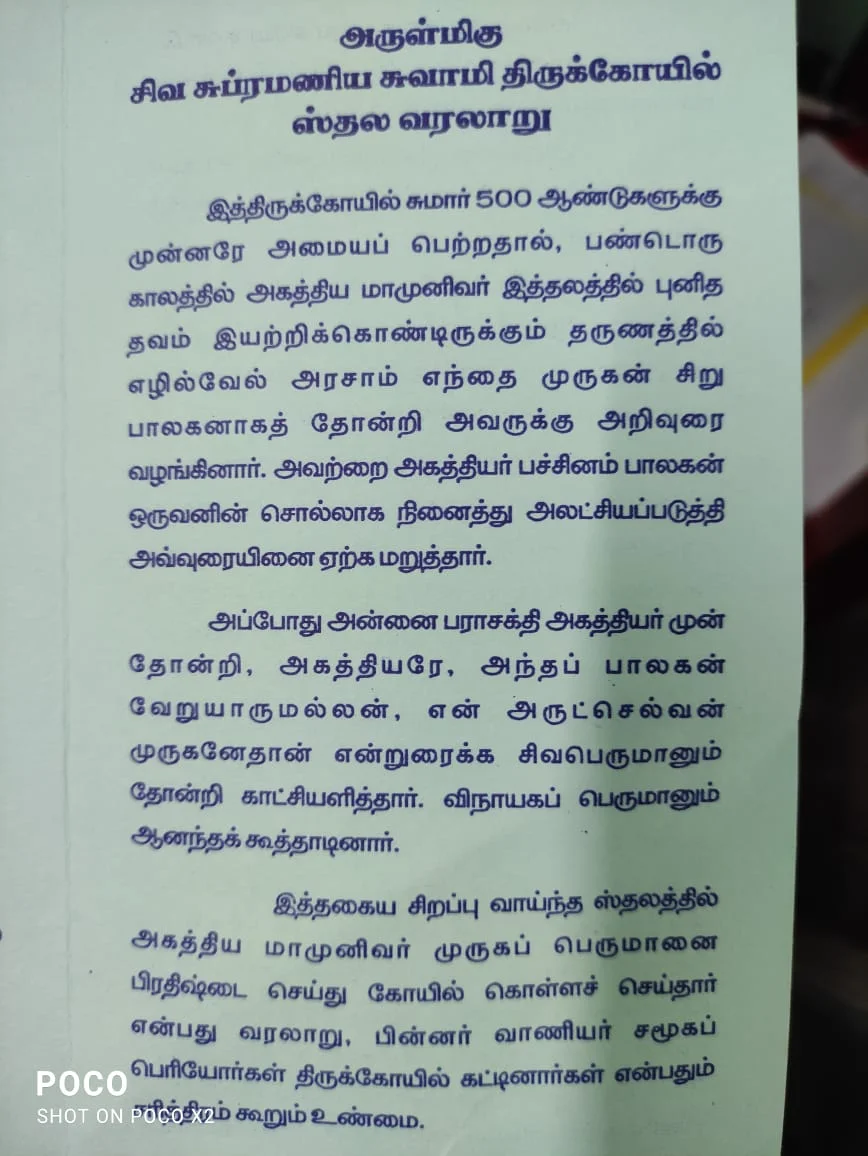 அருள்மிகு
சிவ சுப்ரமணிய சுவாமி திருக்கோயில்
ஸ்தல வரலாறு
இத்திருக்கோயில் சுமார் 500 ஆண்டுகளுக்கு
முன்னரே அமையப் பெற்றதால், பண்டொரு
காலத்தில் அகத்திய மாமுனிவர் இத்தலத்தில் புனித
தவம் இயற்றிக்கொண்டிருக்கும் தருணத்தில்
எழில்வேல் அரசாம் எந்தை முருகன் சிறு
பாலகனாகத் தோன்றி அவருக்கு அறிவுரை
வழங்கினார். அவற்றை அகத்தியர் பச்சினம் பாலகன்
ஒருவனின் சொல்லாக நினைத்து அலட்சியப்படுத்தி
அவ்வுரையினை ஏற்க மறுத்தார்.
அப்போது அன்னை பராசக்தி அகத்தியர் முன்
தோன்றி, அகத்தியரே, அந்தப் பாலகன்
வேறுயாருமல்லன், என் அருட்செல்வன்
முருகனேதான் என்றுரைக்க சிவபெருமானும்
தோன்றி காட்சியளித்தார். விநாயகப் பெருமானும்
ஆனந்தக் கூத்தாடினார்.
இத்தகைய சிறப்பு வாய்ந்த ஸ்தலத்தில்
அகத்திய மாமுனிவர் முருகப் பெருமானை
பிரதிஷ்டை செய்து கோயில் கொள்ளச் செய்தார்
என்பது வரலாறு, பின்னர் வாணியர் சமூகப்
பெரியோர்கள் திருக்கோயில் கட்டினார்கள் என்பதும்
கூறும் உண்மை.
POCO
SHOT ON POCO X2